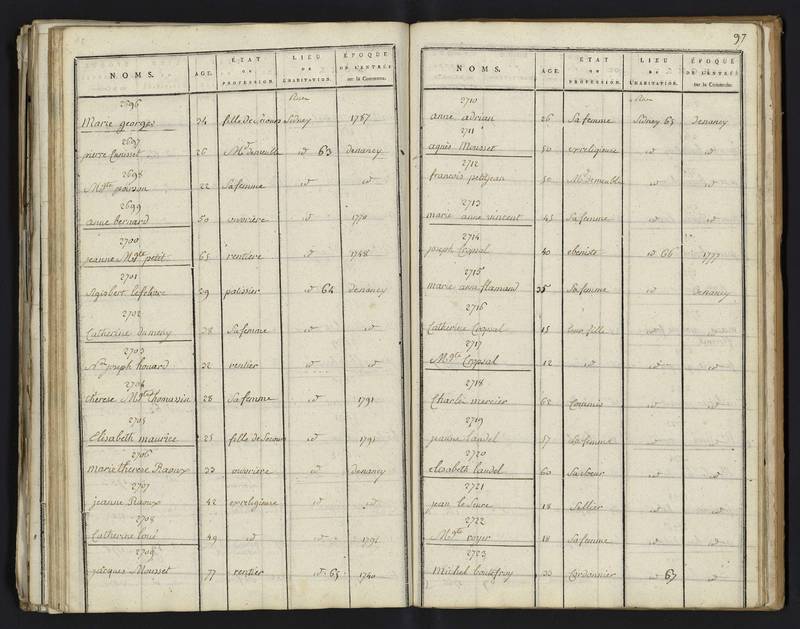 NOMS. AGE. ÉTAT OU PROFESSION. LIEU DE L'HABITATION. ÉPOQUE DE L'ENTRÉE sur la Commune.
Rue
2696
Marie georges 24 fille de Secours Sidney 1787
2697
pierre 26 Md de meuble id 63 denancy
2698
Mgte poirson 22 Sa femme id id
2699
anne bernard 50 ouvrière id 1770
2700
jeanne Mgte petit 65 rentière id 1788
2701
Sigisbert lefebvre 39 patissier id 64 denancy
2702
Catherine dumeny 38 Sa femme id id
2703
Nas joseph houard 32 rentier id id
2704
therese Mgte thomassin 28 Sa femme id 1791
2705
Elisabeth maurice 25 fille de Secours id 1791
2706
marie therese Raoux 33 ouvrière id denancy
2707
jeanne Raoux 42 exreligieuse id id
2708
Catherine 49 id id 1791
2709
jacques Mousset 77 rentier id 65 1740
97
NOMS. AGE. ÉTAT OU PROFESSION. LIEU DE L'HABITATION. ÉPOQUE DE L'ENTRÉE sur la Commune.
Rue
2710
anne adrian 26 Sa femme Sidney 65 denancy
2711
agnès Mousset 50 exreligieuse id id
2712
francois petitjean 50 Md de meuble id id
2713
marie anne vincent 45 Sa femme id id
2714
joseph Cropsal 40 ebeniste id 66 1777
2715
marie anne flamand 35 Sa femme id denancy
2716
Catherine Cropsal 15 leur fille id id
2717
Mgte Cropsal 12 id id id
2718
Charles mercier 62 Commis id id
2719
jeanne laudel 57 Sa femme id id
2720
elisabeth laudel 60 Sa Soeur id id
2721
jean le Seure 18 Sellier id id
2722
Mgte royer 18 Sa femme id id
2723
Michel boutefroy 30 Cordonnier id 67 id